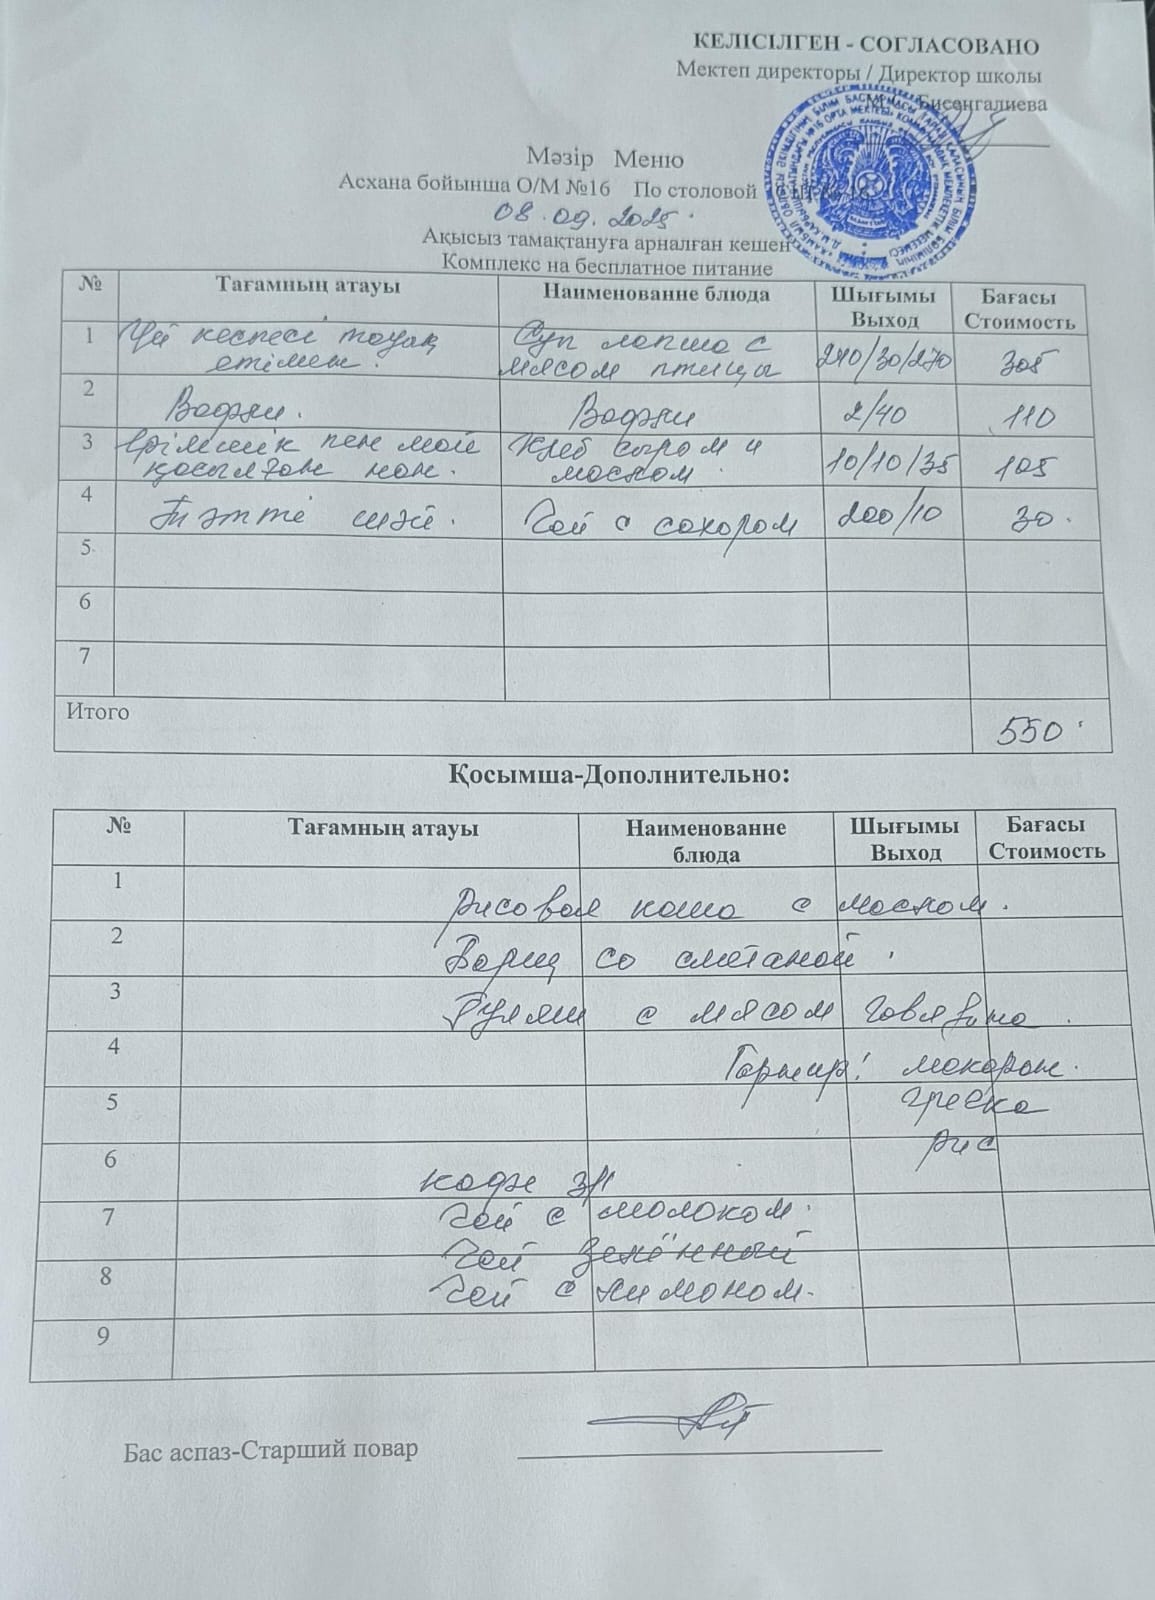 КЕЛІСІЛГЕН - СОГЛАСОВАНО
Мектеп директоры / Директор школы
Бисенгалиева
Мәзір Меню
Асхана бойынша О/М №16 По столовой
08.09.2025
Ақысыз тамақтануға арналған кешен
Комплекс на бесплатное питание
№ Тағамның атауы Наименованне блюда Шығымы Выход Бағасы Стоимость
1 Үй кеспесі тауық етімен. Суп лапша с мясом птицы 240/30/270 305
2 Вафли. Вафли 2/40 110
3 Ірімшік пен май қосылған нан. Хлеб сыром и маслом 10/10/35 105
4 Тәтті шәй. Чай с сахаром 200/10 30.
5
6
7
Итого 550
Қосымша-Дополнительно:
№ Тағамның атауы Наименованне блюда Шығымы Выход Бағасы Стоимость
1 Рисовая каша с маслом.
2 Борщ со сметаной.
3 Гуляш с мясом говядина.
4 Гарнир: макарон.
5 гречка
рис
6 кофе 3/1
7 Чай с молоком.
Чай зелённый
8 Чай с лимоном.
9
Бас аспаз-Старший повар